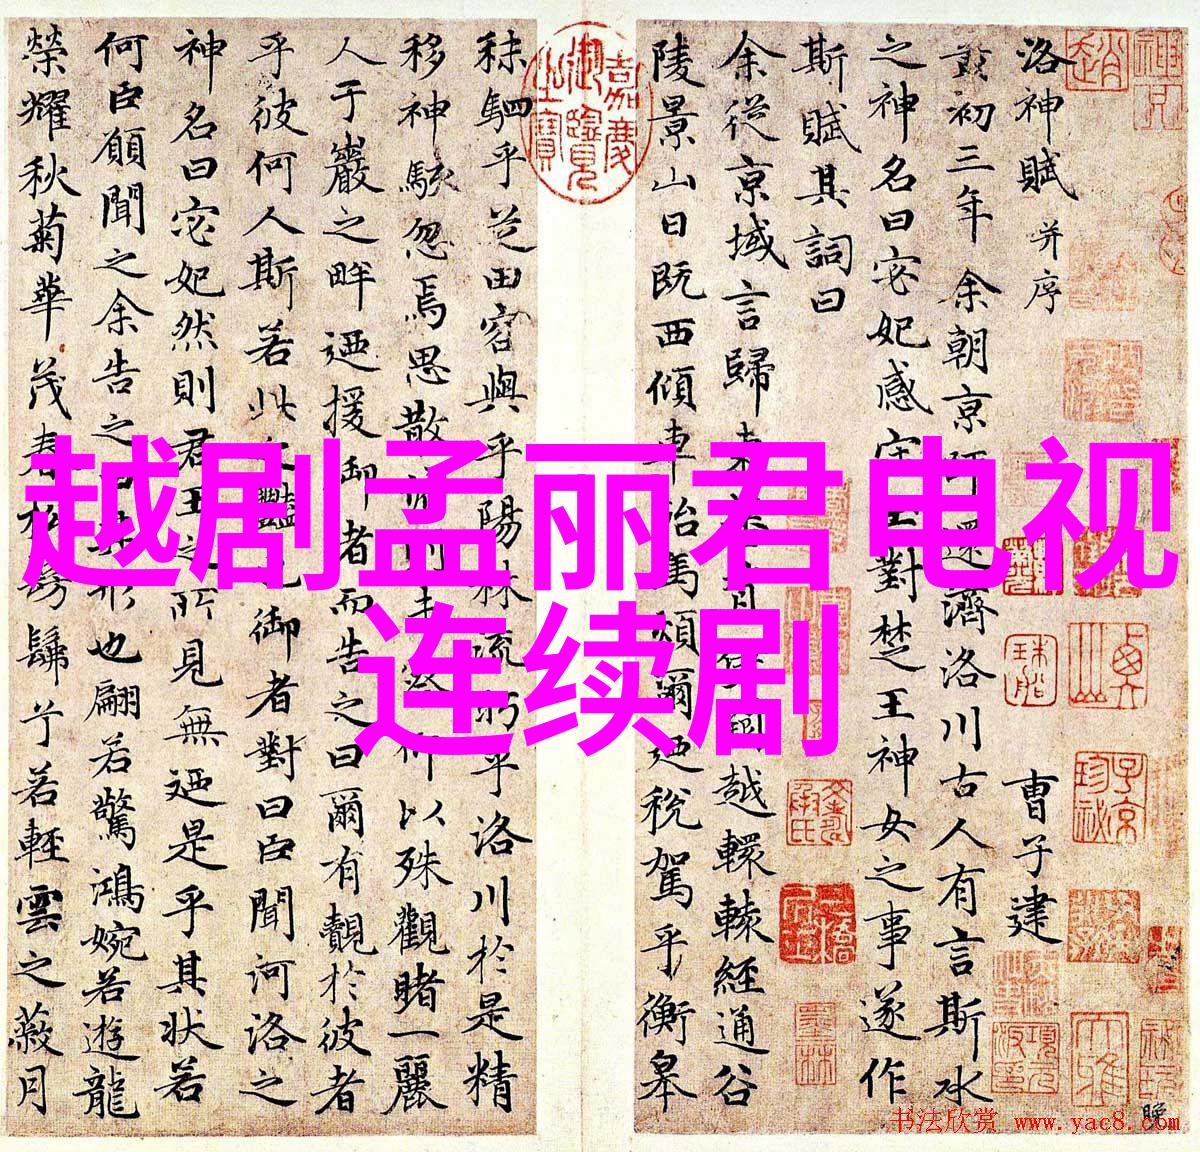 越剧孟丽君电视
连续剧
洛神賦 并序 曹子建
初三年余朝京還濟洛川古人有言斯水
之神名曰宓妃感宋玉對楚王神女之事遂作
斯賦其詞曰
余從京域言歸越轘轅經通谷
陵景山日既西傾車殆馬煩爾迺稅駕乎衡皋
嘉慶御覽之寶
秣駟乎芝田容與乎陽林流眄乎洛川於是精
移神駭忽焉思散仰以殊觀睹一麗
人于巖之畔迺援御者而告之曰爾有覿於彼者
乎彼何人斯若此之豔也御者對曰臣聞河洛之
神名曰宓妃然則君王之所見無迺是乎其狀若
何臣願聞之余告之形也翩若驚鴻婉若遊龍
榮耀秋菊華茂春松髣髴兮若輕雲之蔽月
书法欣赏 www.yac8.com